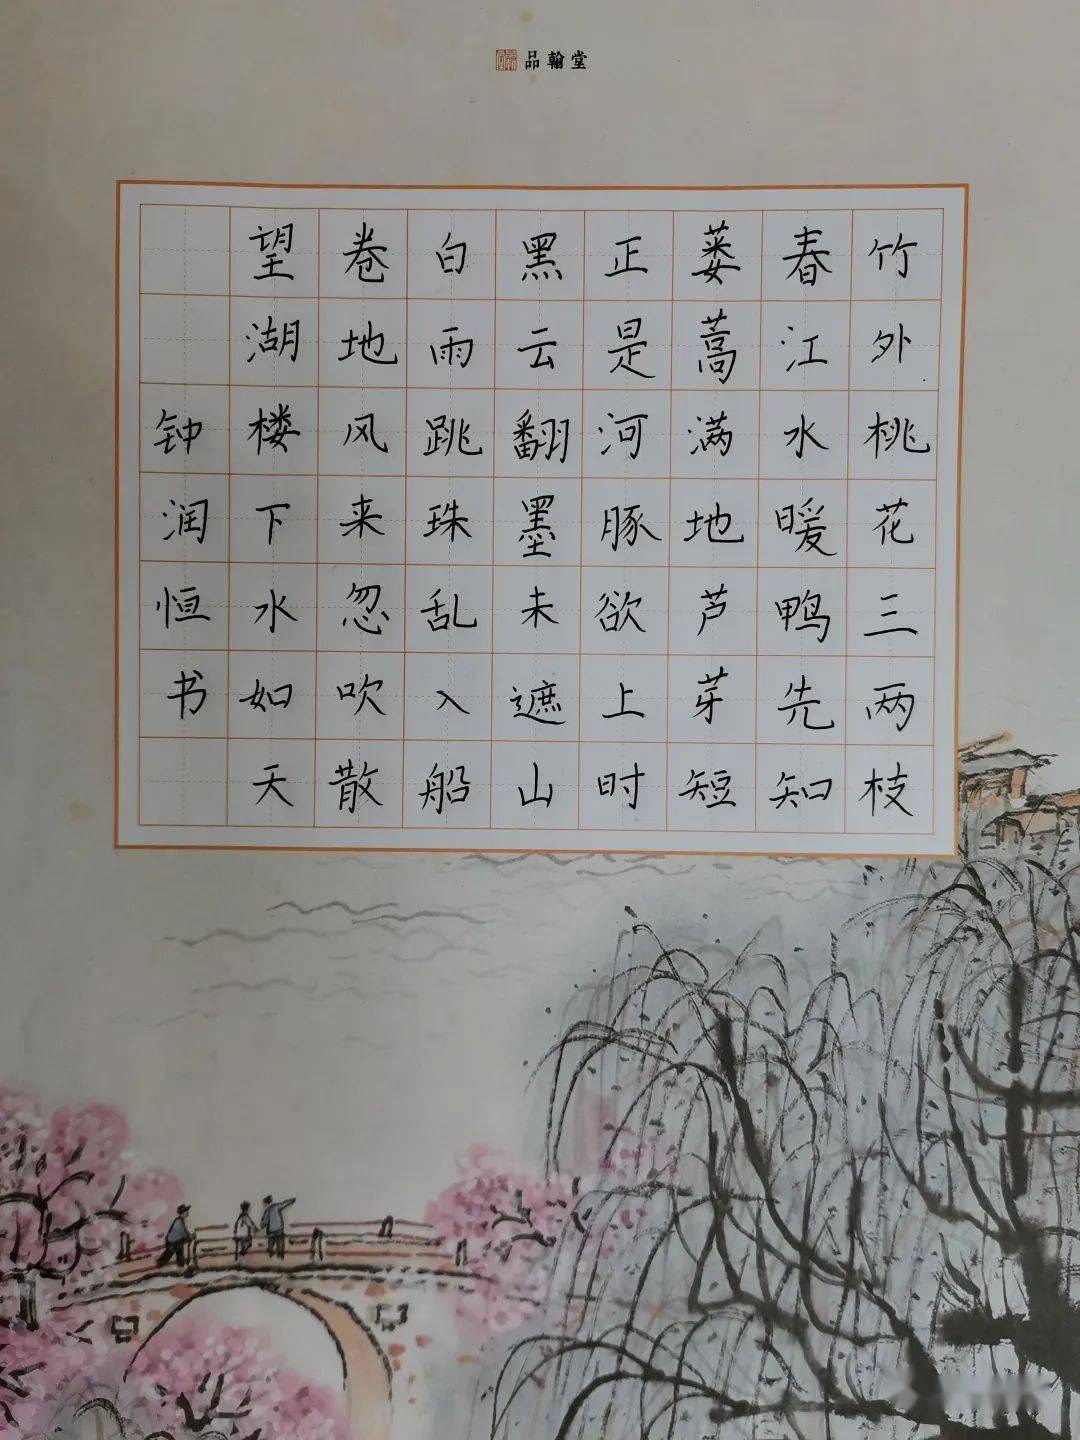 品翰堂
竹外桃花三两枝
春江水暖鸭先知
蒌蒿满地芦芽短
正是河豚欲上时
黑云翻墨未遮山
白雨跳珠乱入船
卷地风来忽吹散
望湖楼下水如天
钟润恒书